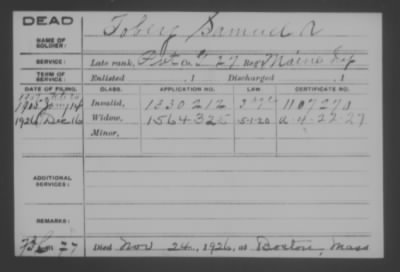 DEAD
NAME OF SOLDIER: Toberg Samuel N
SERVICE: Late rank, Pvt Co. G 27 Reg't Maine Inf
TERM OF SERVICE: Enlisted , 1 Discharged , 1
DATE OF FILING. CLASS. APPLICATION NO. LAW. CERTIFICATE NO.
1905 Jany 14 Invalid, 1330212 1107273
1926 Dec 16 Widow, 1564325 5-1-20 a-4-22-27
Minor,
ADDITIONAL SERVICES:
REMARKS:
Died Nov 24, 1926, at Boston, Mass